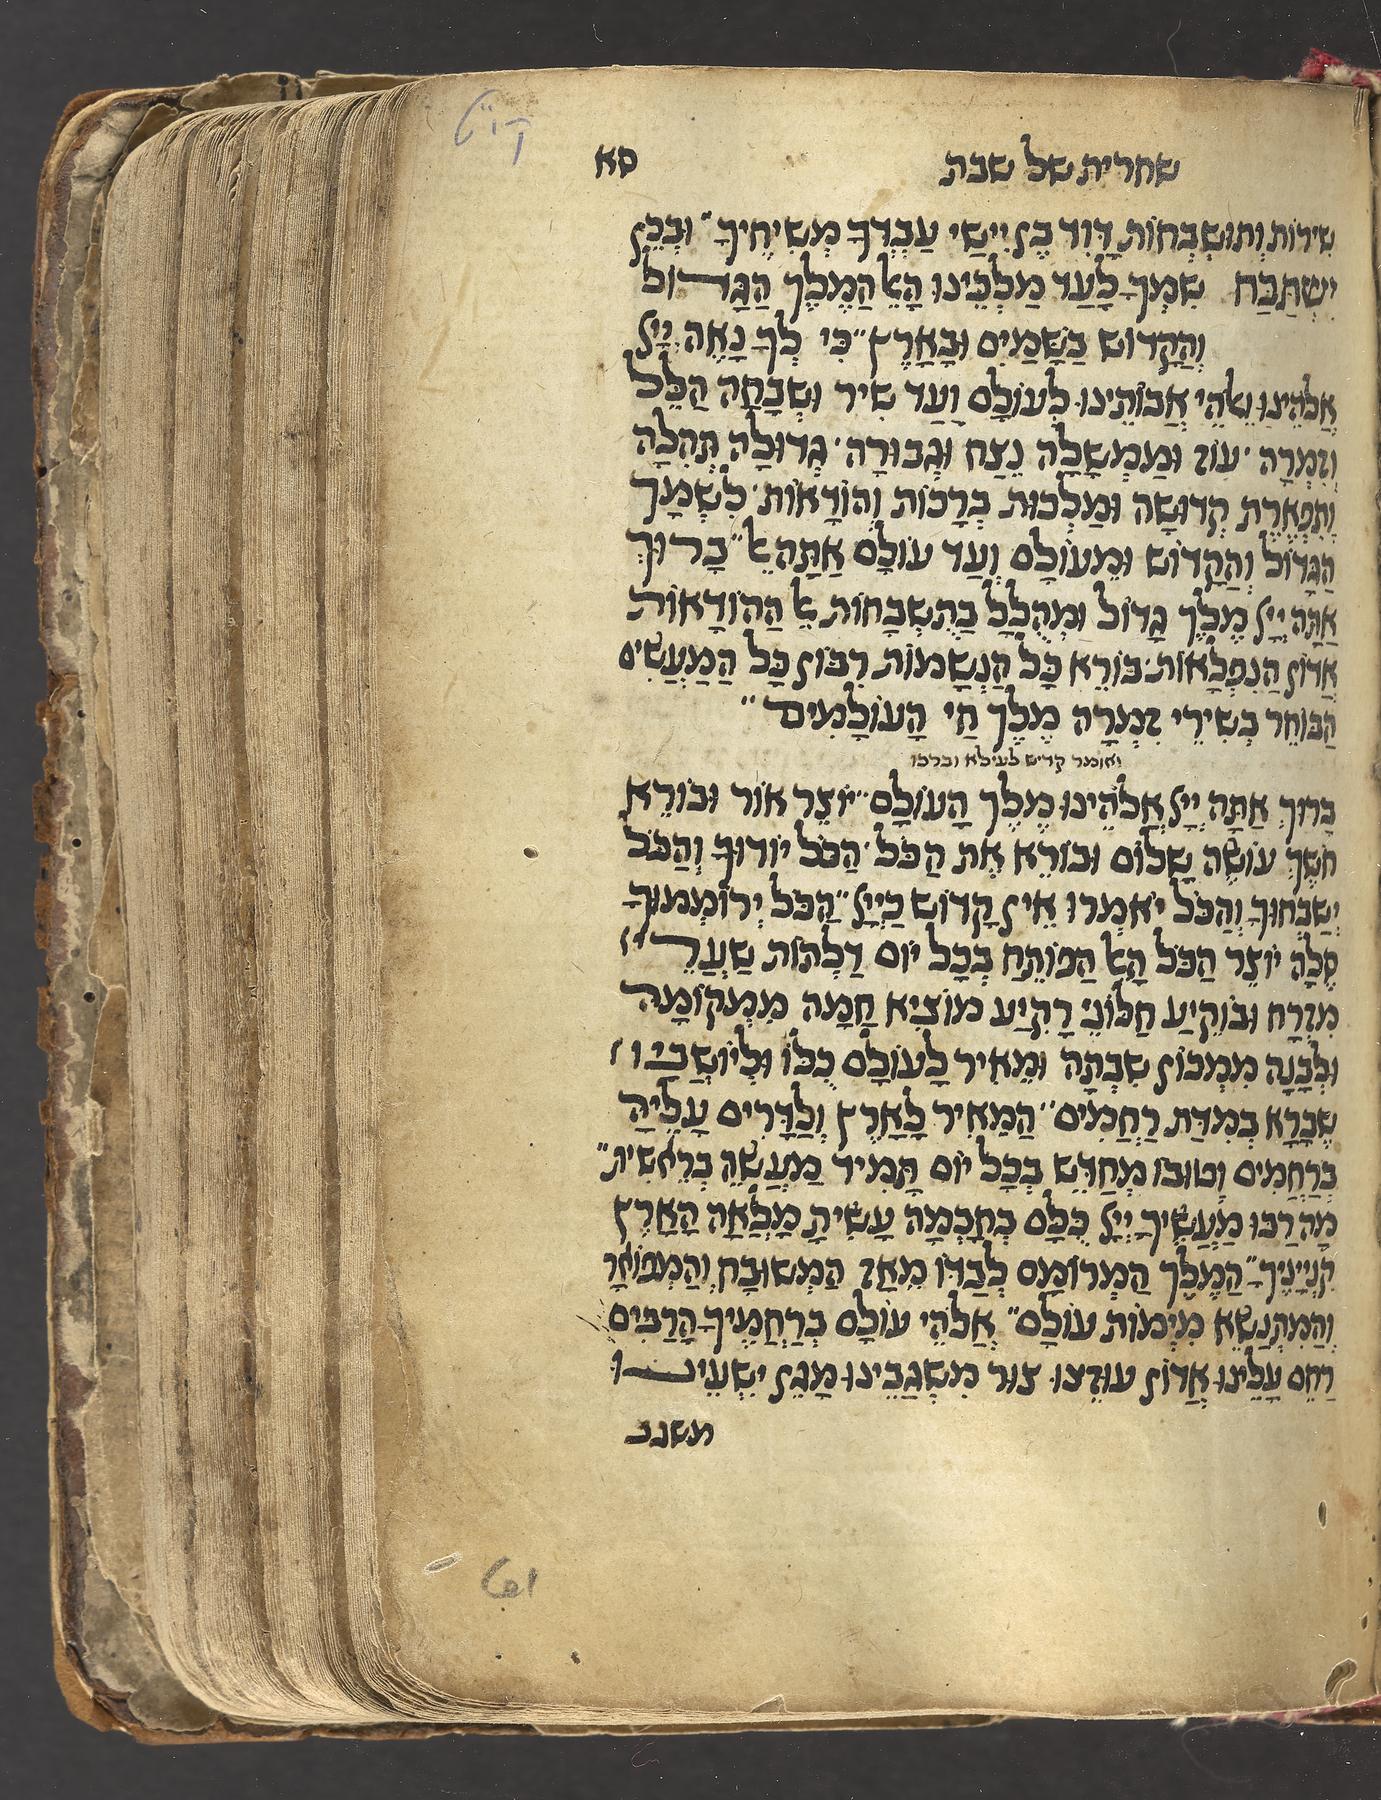 שחרית של שבת סא
שִירוֹת וְתוּשְבְחוֹת דָּוִד בֶן יִישַי עַבְדְךָ מְשִיחֶיךָ״ וּבְכֵן
יִשְתַּבַּח שִמְךָ לָעַד מַלְכֵינוּ הָאֵל הַמֶלֶך הַגָּדוֹל
וְהַקָדוֹש בַּשָמַיִם וּבָאָרֶץ״ כִּי לְךָ נָאֶה יְיָ
אֱלֹהֵינוּ וֵאלֹהֵי אֲבוֹתֵינוּ לְעוֹלָם וָעַד שִיר וּשְבָחָה הַלֵּל
וְזִמְרָה ׳ עוֹז וּמַמְשָלָה נֵצַח וּגְבוּרָה׳ גְדוּלָה תְּהִלָה
וְתִפְאֶרֶת קְדוּשָה וּמַלְכוּת בְּרָכוֹת וְהוֹדָאוֹת׳ לְשִמְךָ
הַגָּדוֹל וְהַקָדוֹש וּמֵעוֹלָם וְעַד עוֹלָם אַתָּה אֵל״ בָּרוּךְ
אַתָּה יְיָ מֶלֶךְ גָדוֹל וּמְהֻלָל בַּתִשְבָּחוֹת אֵל הַהוֹדָאוֹת
אֲדוֹן הַנִפְלָאוֹת׳ בּוֹרֵא כָּל הַנְשָמוֹת רִבּוֹן כָּל הַמַעֲשִים
הַבּוֹחֵר בְּשִירֵי זִמְרָה מֶלֶךְ חַי הָעוֹלָמִים״
ואומר קדיש לעילא וברכו
בָּרוּךְ אַתָּה יְיָ אֱלֹהֵינוּ מֶלֶךְ הָעוֹלָם״ יוֹצֵר אוֹר וּבוֹרֵא
חשֶךְ עוֹשֶה שָלוֹם וּבוֹרֵא אֶת הַכֹּל׳ הַכֹּל יוֹדוּךָ וְהַכֹּל
יְשַבְּחוּךָ וְהַכֹּל יֹאמְרוּ אֵין קָדוֹש כַּיְיָ״ הַכֹּל יְרוֹמְמוּךָ
סֶלָה יוֹצֵר הַכֹּל הָאֵל הַפּוֹתֵחַ בְּכָל יוֹם דַלְתוֹת שַעֲרֵי
מִזְרָח וּבוֹקֵיעַ חַלוֹנֵי רָקִיעַ מוֹצִיא חַמָּה מִמְקוֹמָהּ
וּלְבָנָה מִמְכוֹן שִבְתָּהּ וּמֵאִיר לָעוֹלָם כֻּלּוֹ וּלְיוֹשְבָיו
שֶבָּרָא בְּמִדַּת רַחֲמִים״ הַמֵאִיר לָאָרֶץ וְלַדָּרִים עָלֶיהָ
בְּרַחֲמִים וְטוּבוֹ מְחַדֵּש בְּכָל יוֹם תָּמִיד מַעֲשֵה בְרֵאשִית״
מָה רַבּוּ מַעֲשֶיךָ יְיָ כֻּלָּם בְּחָכְמָה עָשִיתָ מָלְאָה הָאָרֶץ
קִנְיָינֶיךָ״ הַמֶלֶךְ הַמְרוֹמָם לְבַדּוֹ מֵאָז הַמְשוּבָּח וְהַמְפוֹאָר
וְהַמִתְנַשֵא מִימוֹת עוֹלָם״ אֱלֹהֵי עוֹלָם בְּרַחֲמֶיךָ הָרַבִּים
רַחֵם עָלֵינוּ אֲדוֹן עוּזֵּנוּ צוּר מִשְגַבֵּינוּ מָגֵן יִשְעֵינוּ
משגב
61